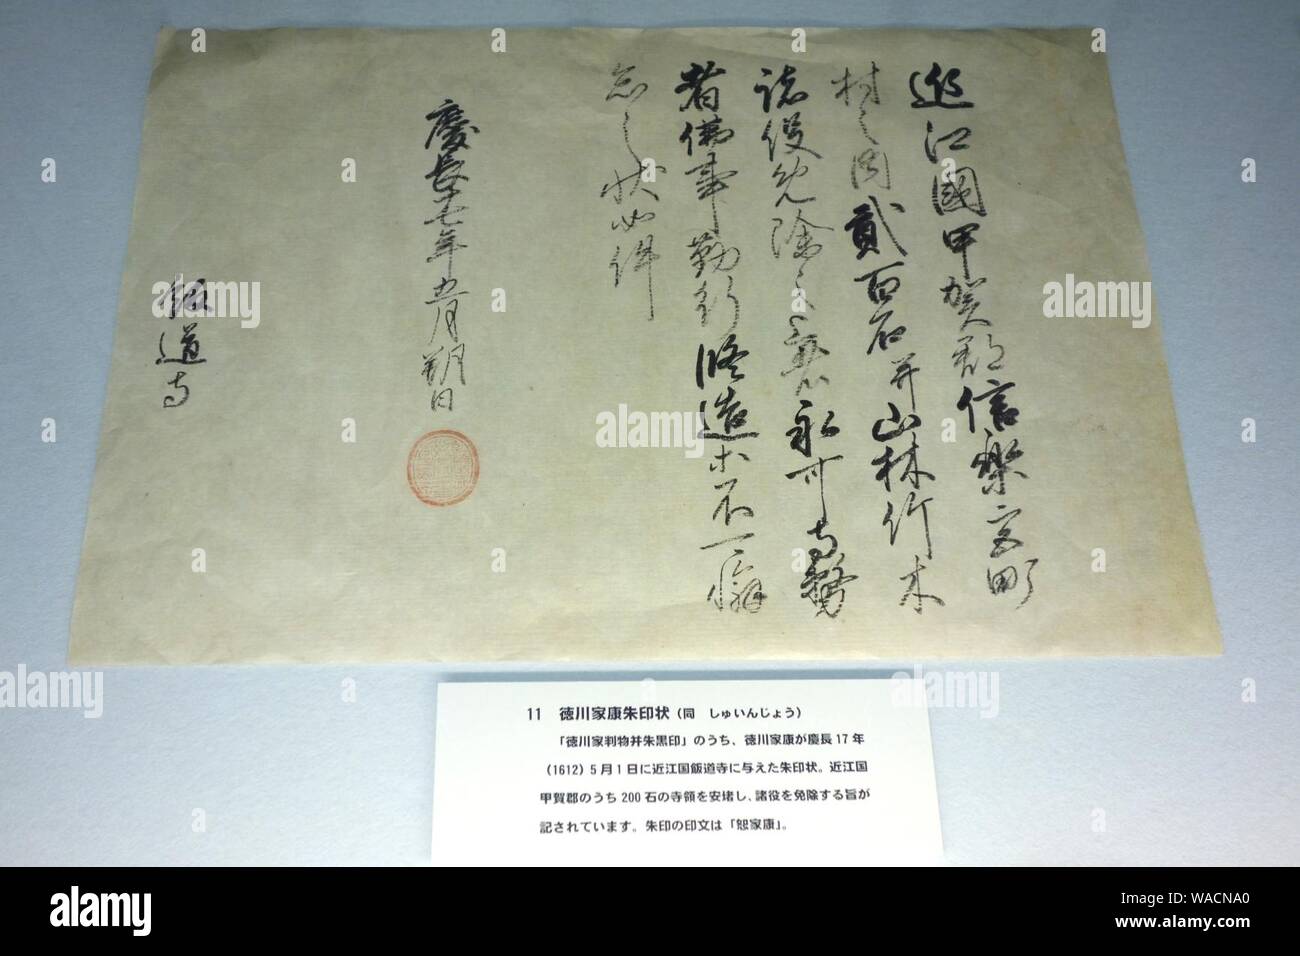 近江國甲賀郡信樂宮町
村之内貳百石并山林竹木
諸役免除之事永可寺務
者佛事勤行修造等不可懈
怠之状如件
慶長十七年五月朔日
飯道寺
11 徳川家康朱印状（同 しゅいんじょう）
「徳川家判物并朱黒印」のうち、徳川家康が慶長17年
（1612）5月1日に近江国飯道寺に与えた朱印状。近江国
甲賀郡のうち200石の寺領を安堵し、諸役を免除する旨が
記されています。朱印の印文は「恕家康」。
alamy
Image ID: WACNA0
www.alamy.com